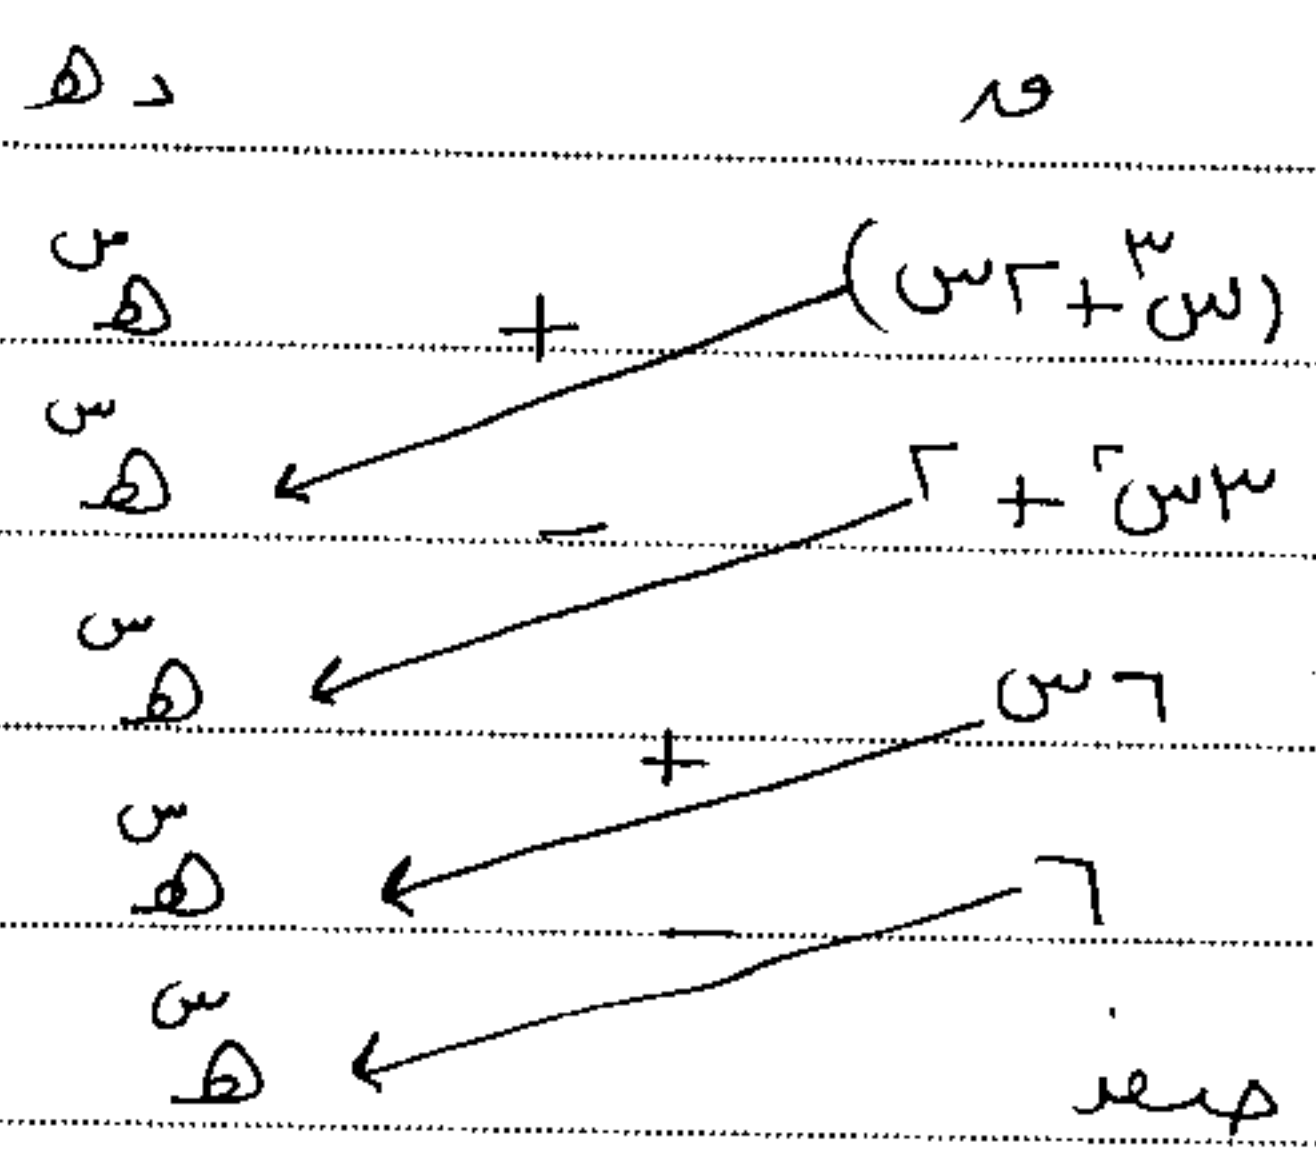 ور د هـ
(س^٣ + ٢س) + هـ^س
٣س^٢ + ٢ − هـ^س
٦س + هـ^س
٦ − هـ^س
صفر هـ^س